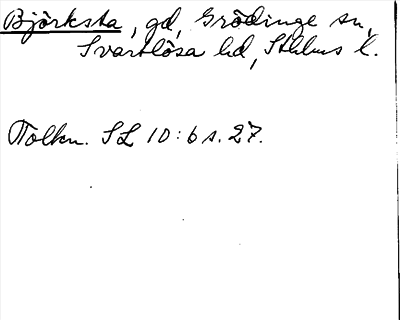 Björksta, gd, Grödinge sn,
Svartlösa hd, Sthlms l.
Tolkn. SL 10:6 s. 27.